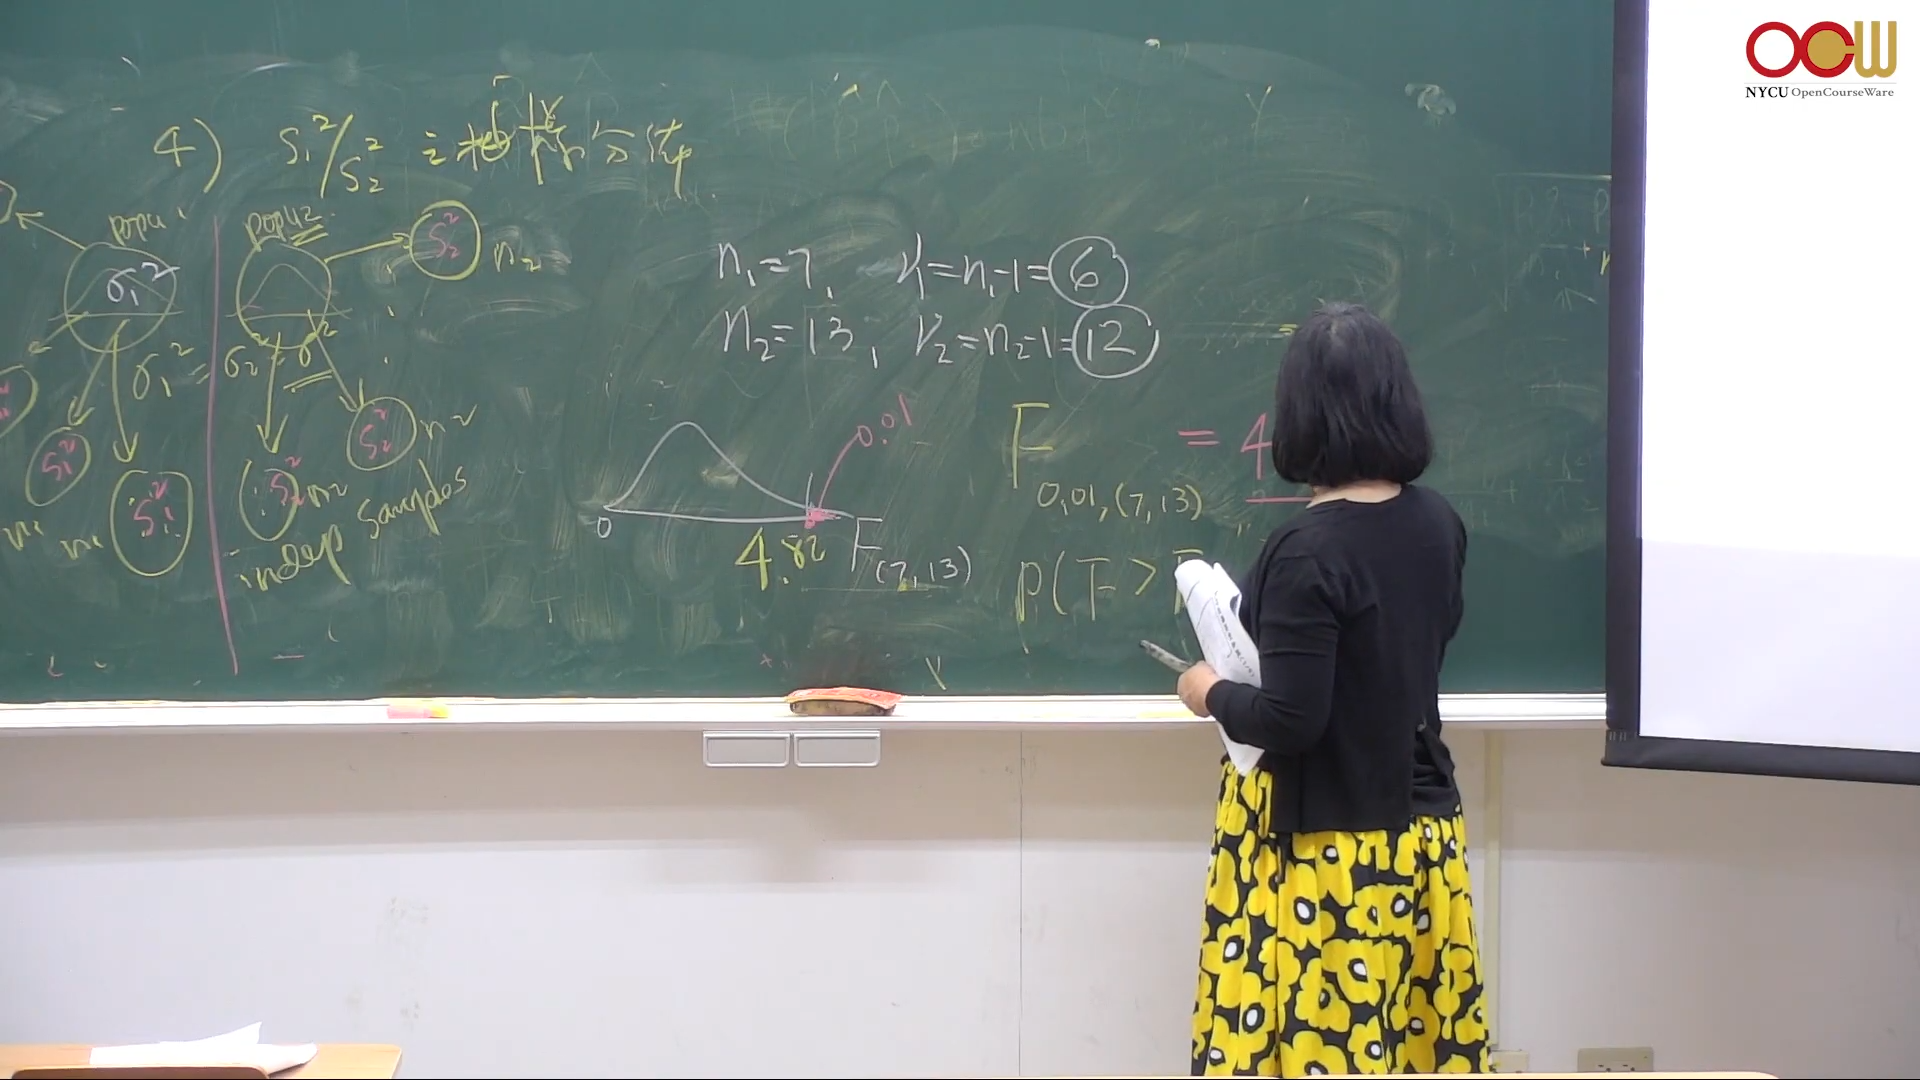 OCW
NYCU OpenCourseWare
4) S₁²/S₂² 之抽樣分佈
popu 1
popu 2
σ₁²
S₂² n₂
σ₁² = σ₂² = σ²
S₁²
S₁²
S₂² n₂
S₂² n₂
n₁ n₁
indep samples
n₁=7, ν₁=n₁-1=6
n₂=13, ν₂=n₂-1=12
0.01
0
4.82
F(7,13)
F 0.01,(7,13) = 4
P(F > F